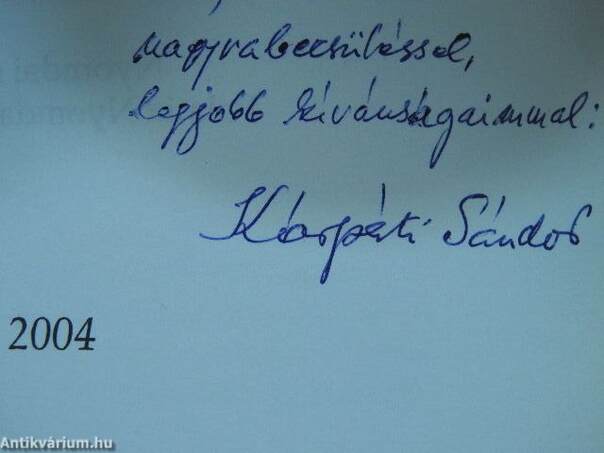 nagyrabecsüléssel,
legjobb kívánságaimmal:
Kárpáti Sándor
2004
Antikvárium.hu